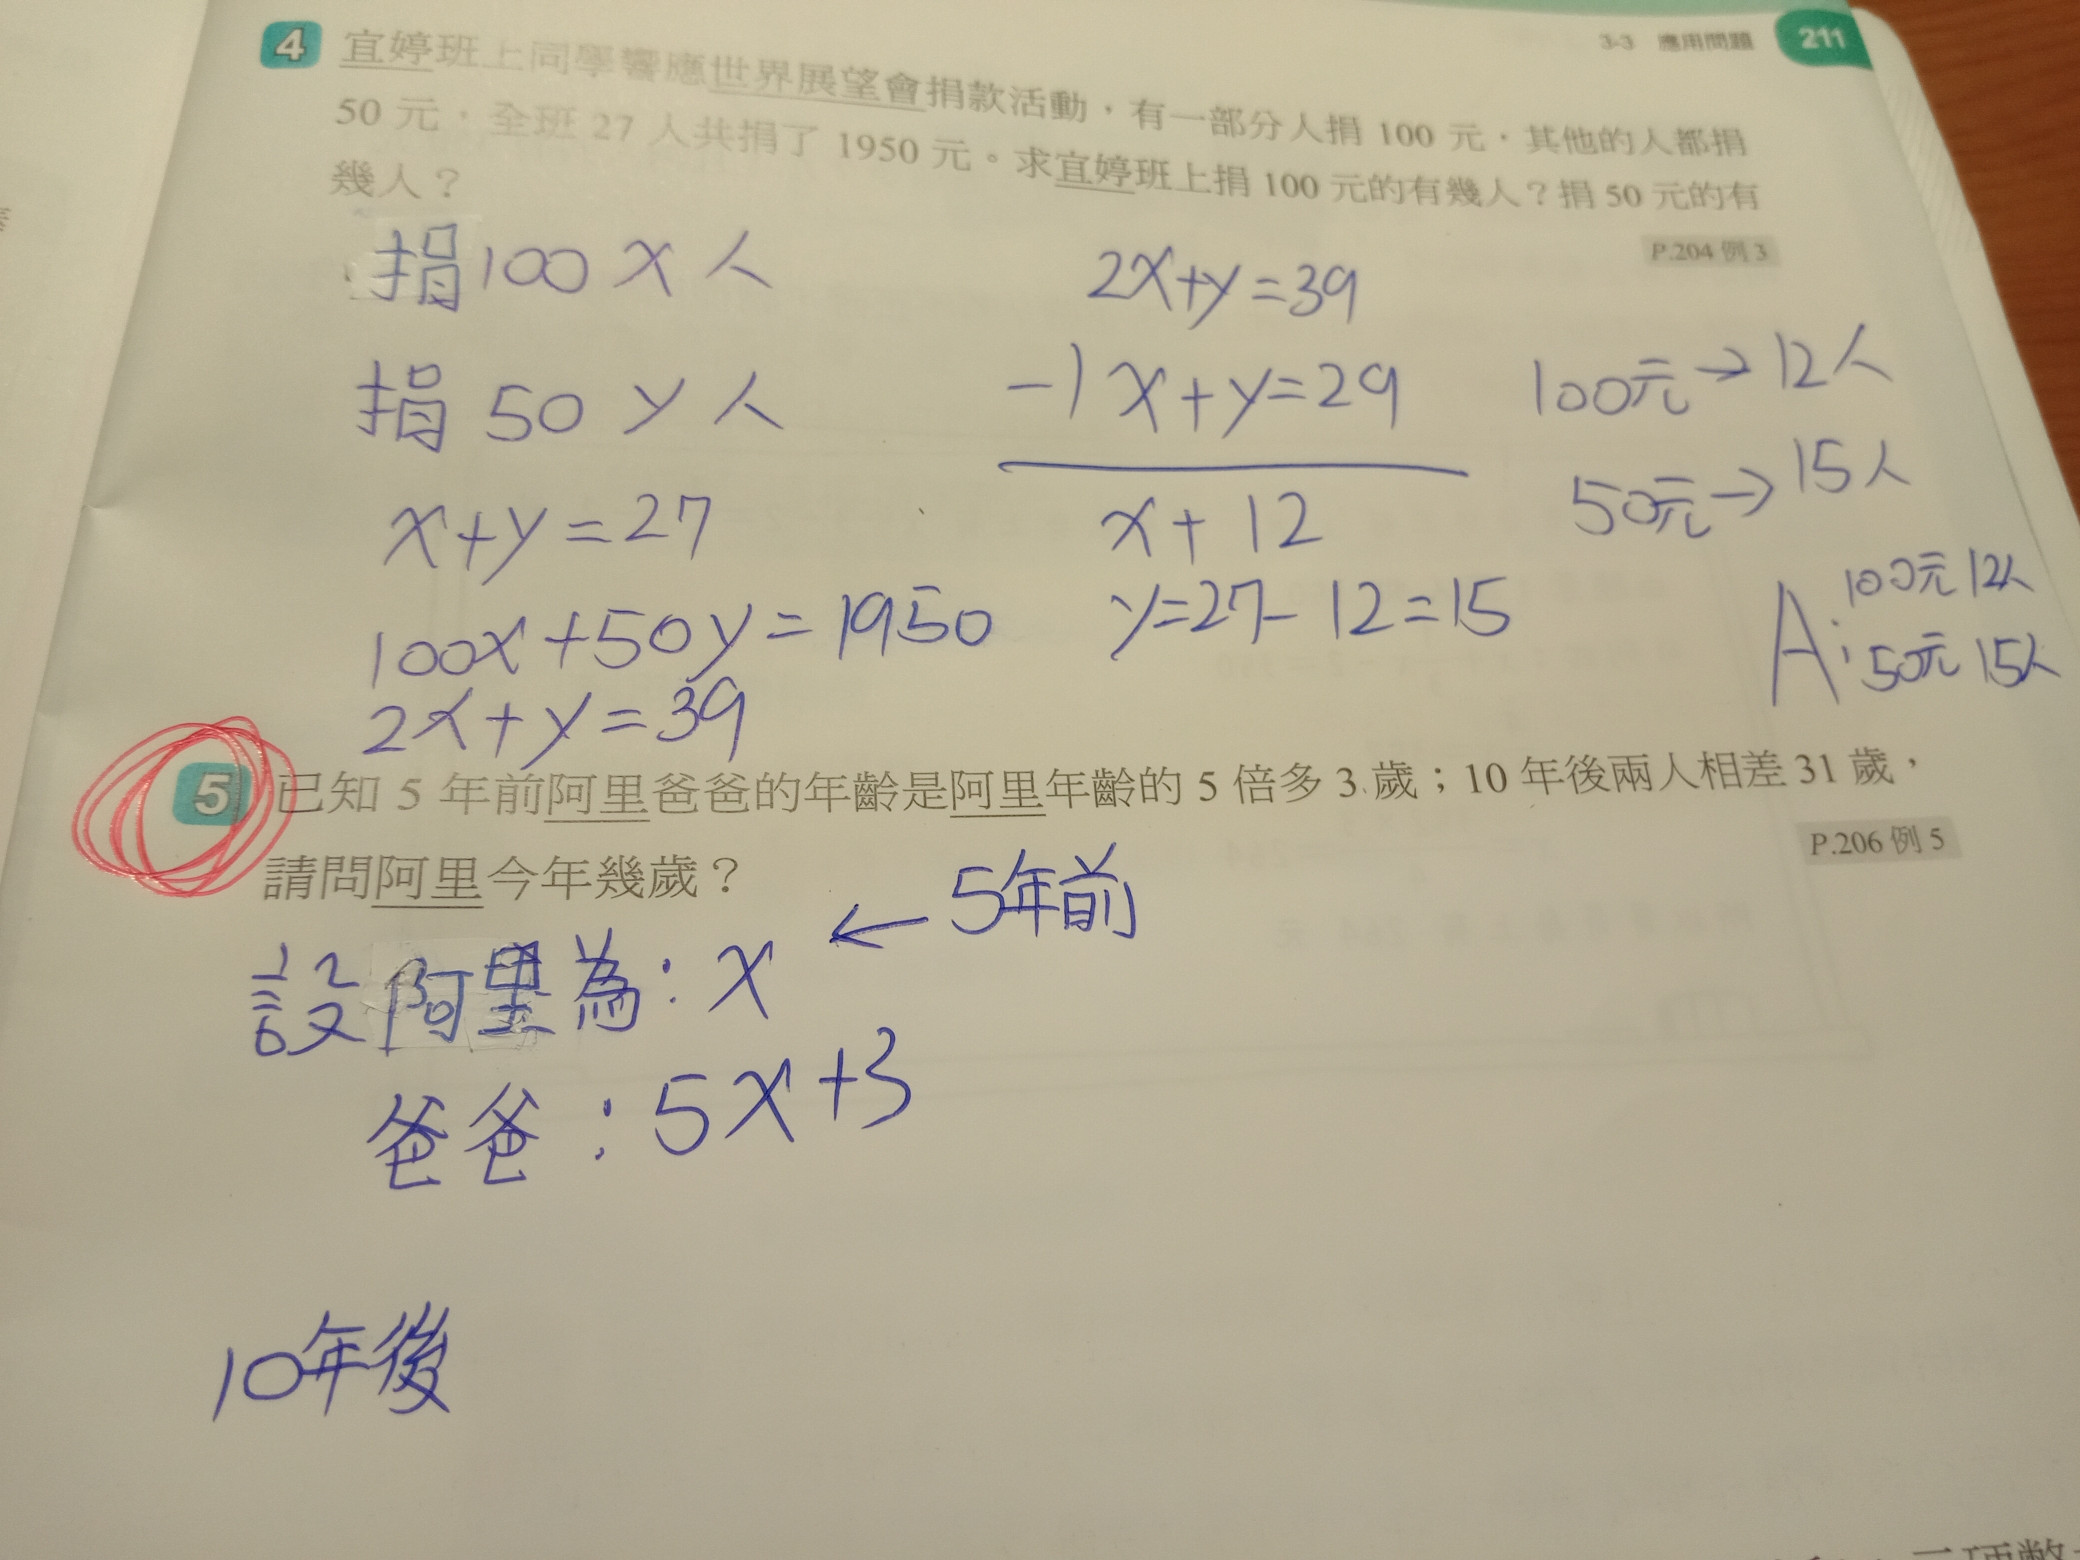 3-3 應用問題 211
4 宜婷班上同學響應世界展望會捐款活動，有一部分人捐 100 元，其他的人都捐
50 元，全班 27 人共捐了 1950 元。求宜婷班上捐 100 元的有幾人？捐 50 元的有
幾人？
P.204 例 3
捐100 x 人
捐 50 y 人
x+y=27
100x+50y=1950
2x+y=39
2x+y=39
-) x+y=29
x+ 12
y=27-12=15
100元→12人
50元→15人
A: 100元12人
50元15人
5 已知 5 年前阿里爸爸的年齡是阿里年齡的 5 倍多 3 歲；10 年後兩人相差 31 歲，
請問阿里今年幾歲？
P.206 例 5
設阿里為：x ← 5年前
爸爸：5x+3
10年後